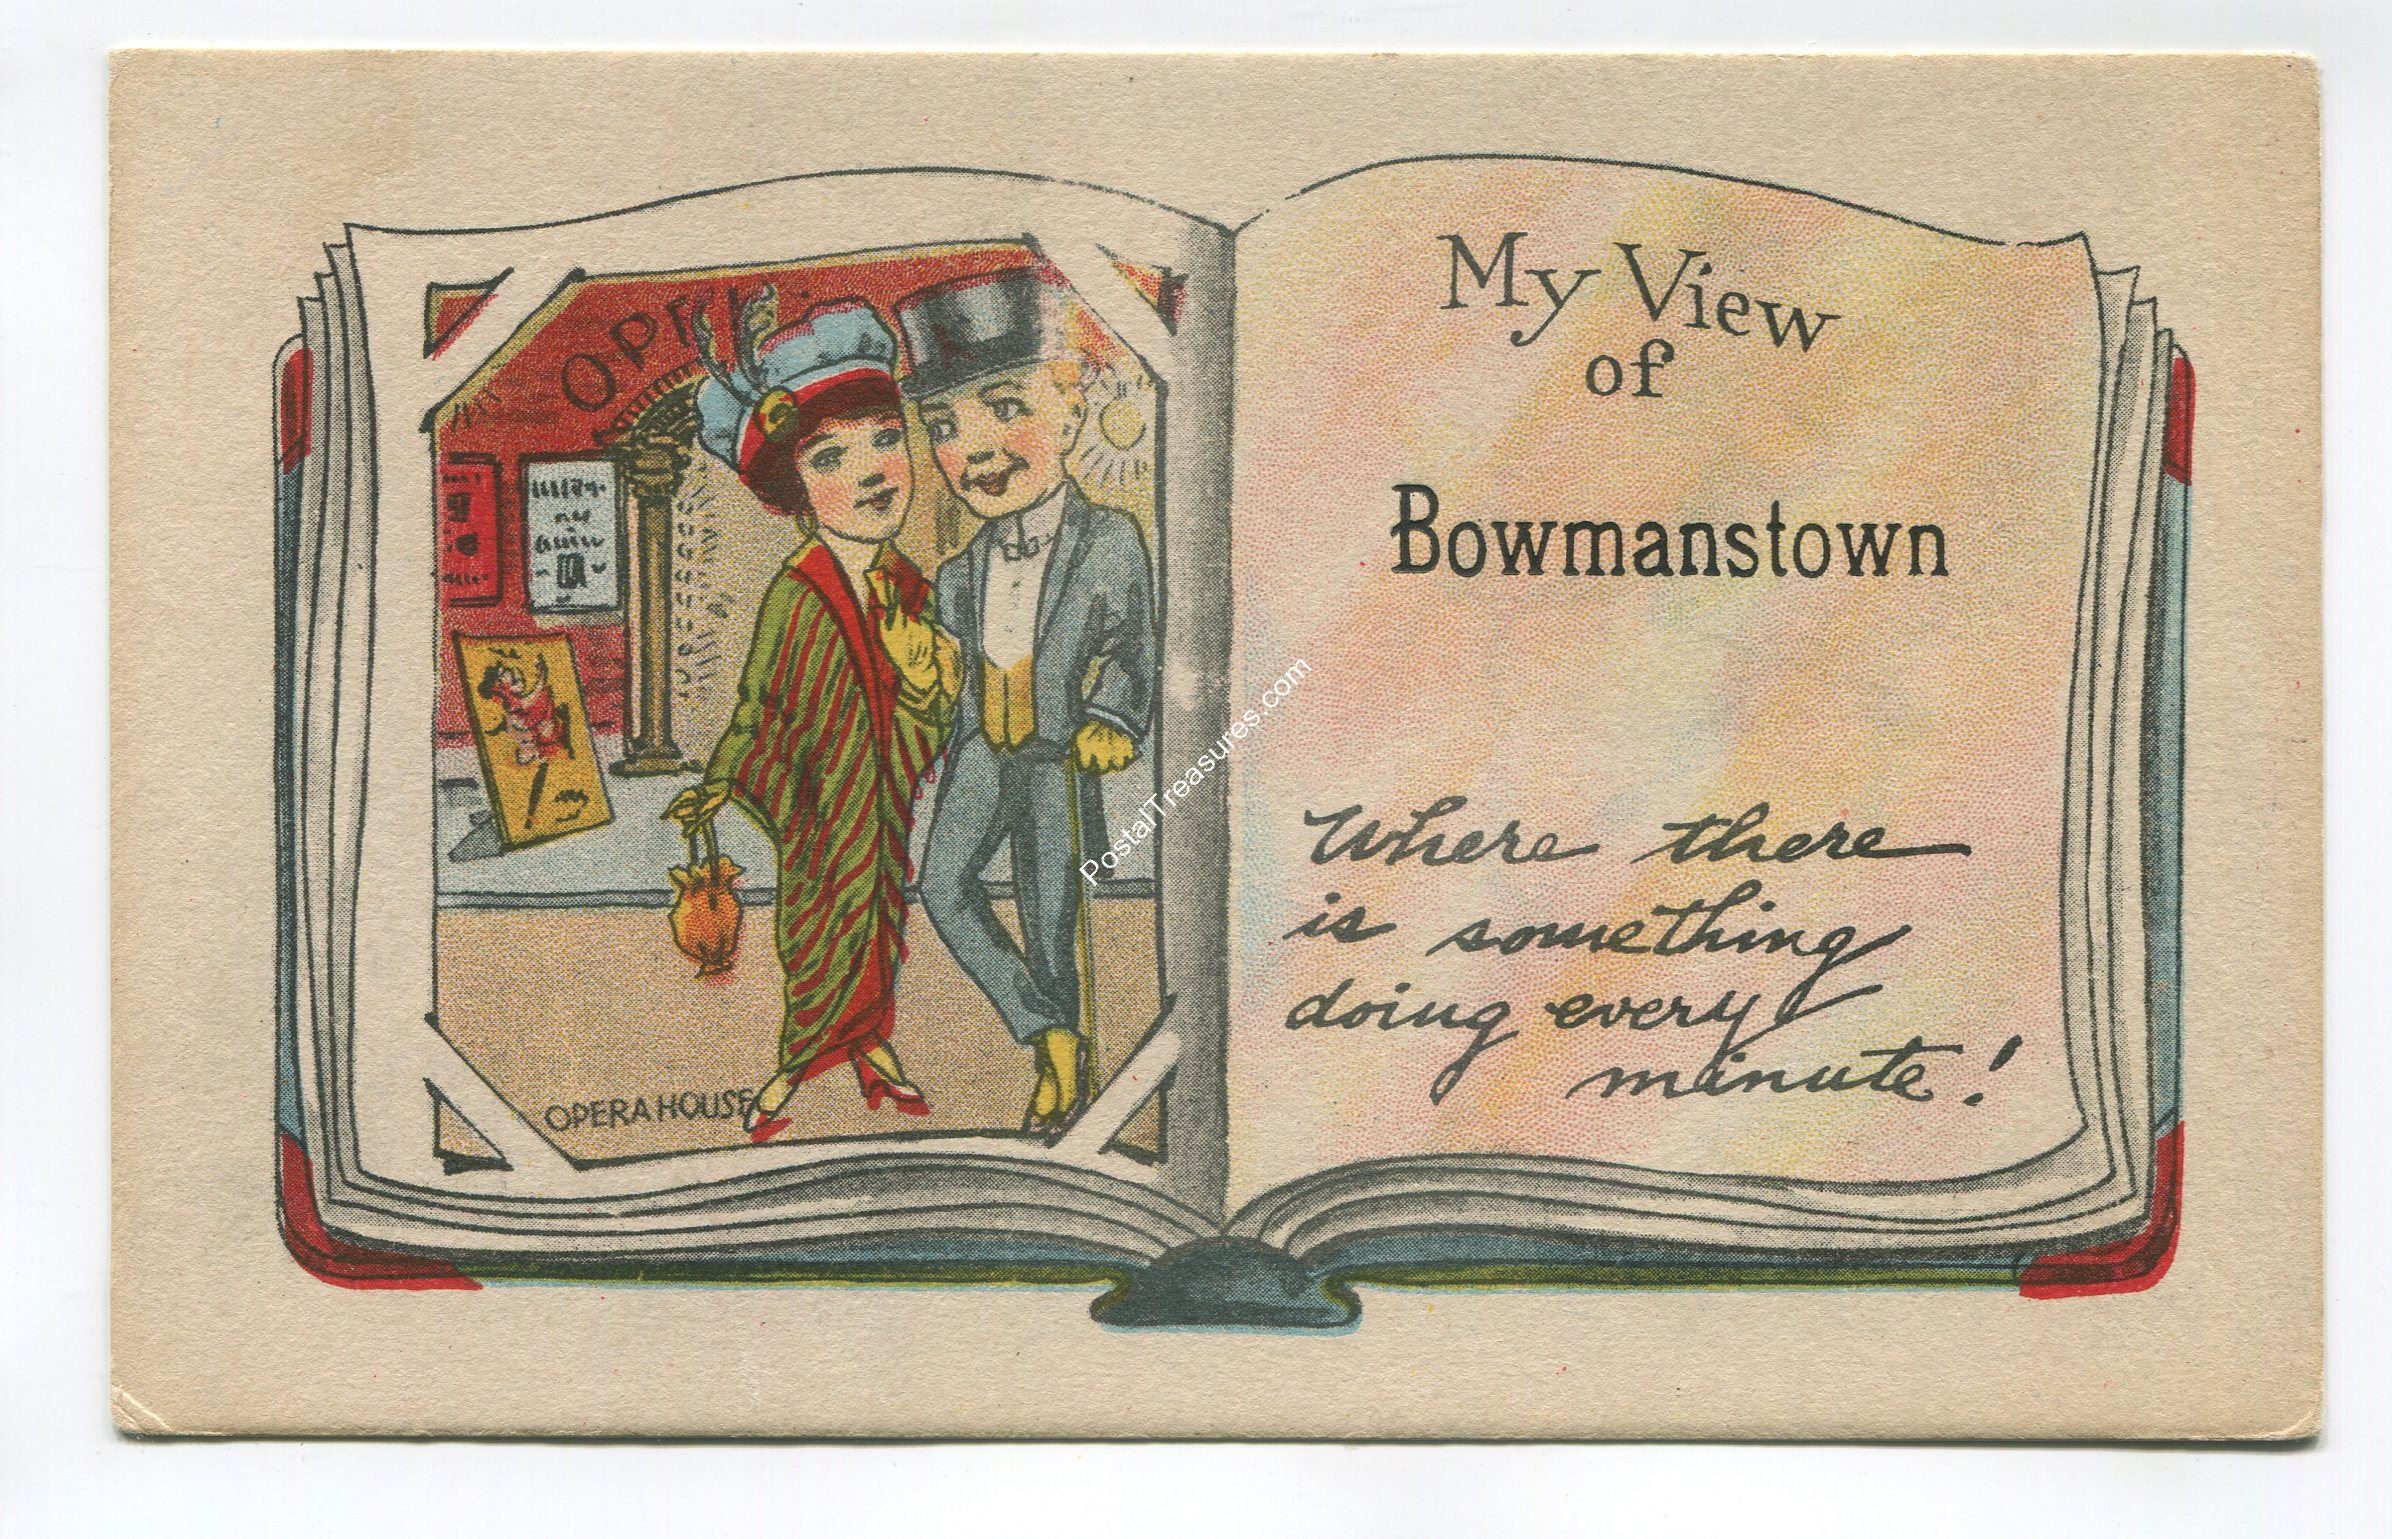 OPE
OPERA HOUSE
My View
of
Bowmanstown
Where there
is something
doing every
minute!
PostalTreasures.com